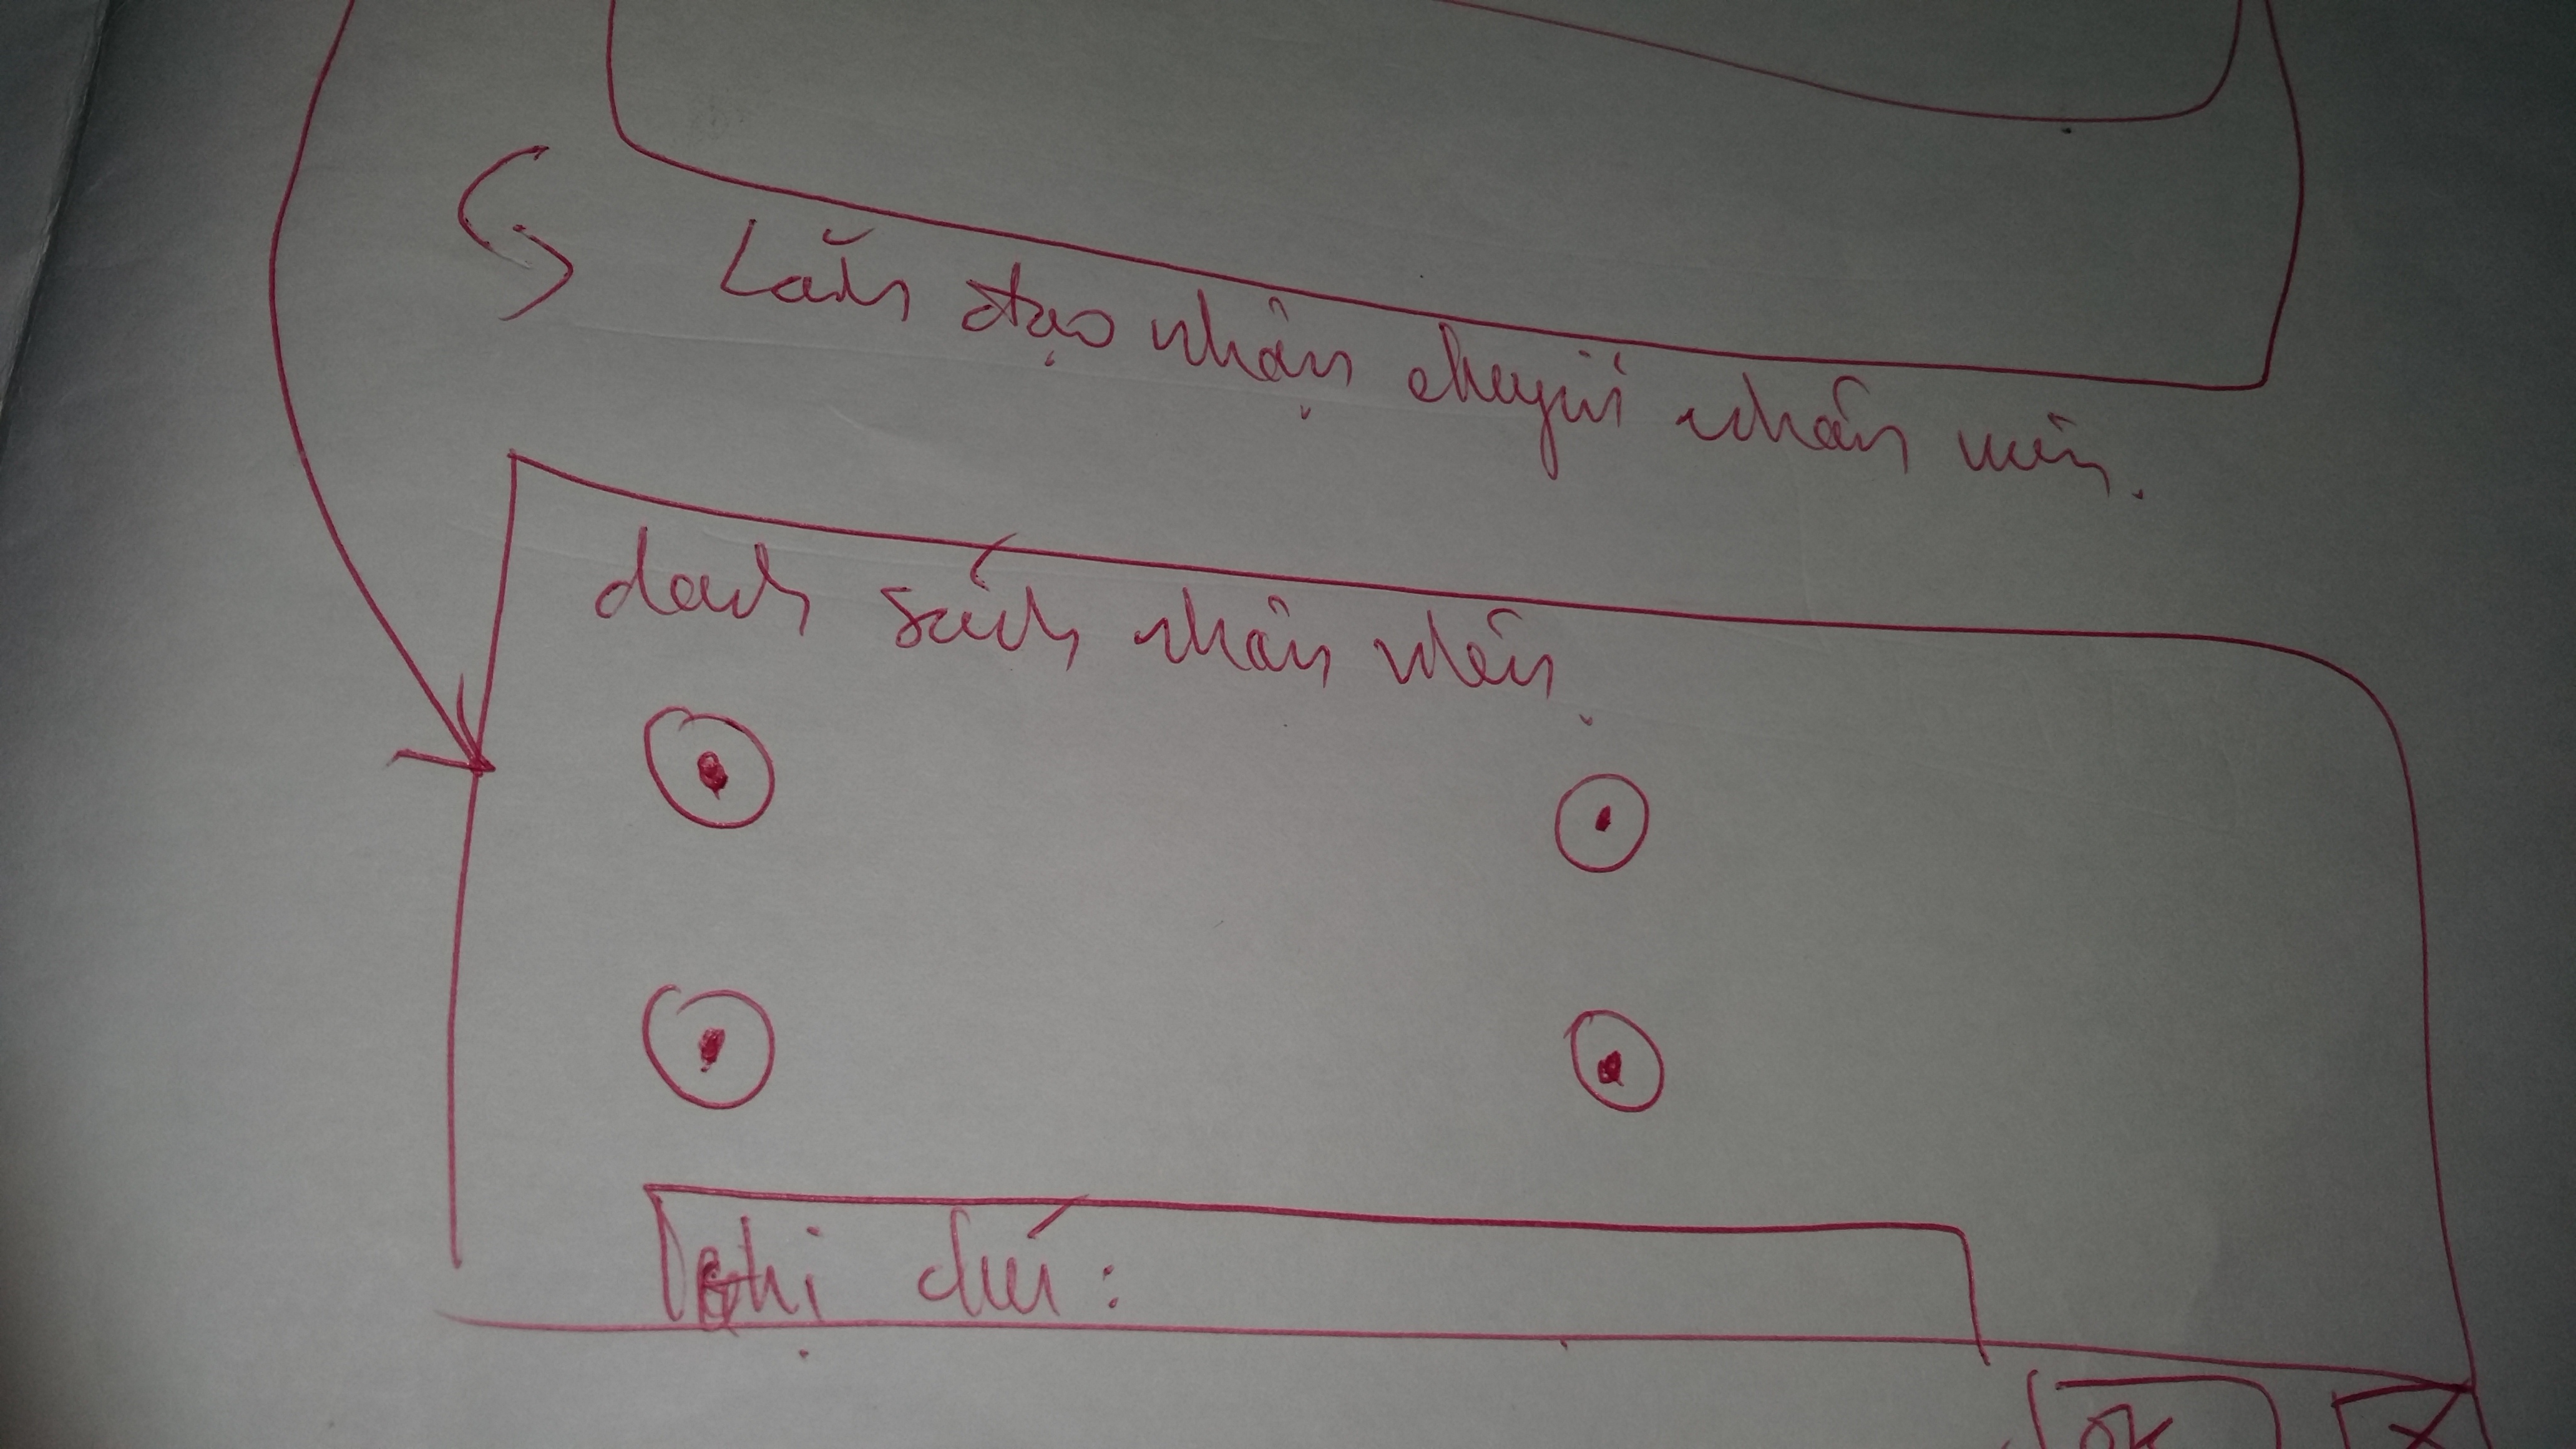 Lãnh đạo nhận chuyển nhân viên.
danh sách nhân viên
Ghi chú:
OK X